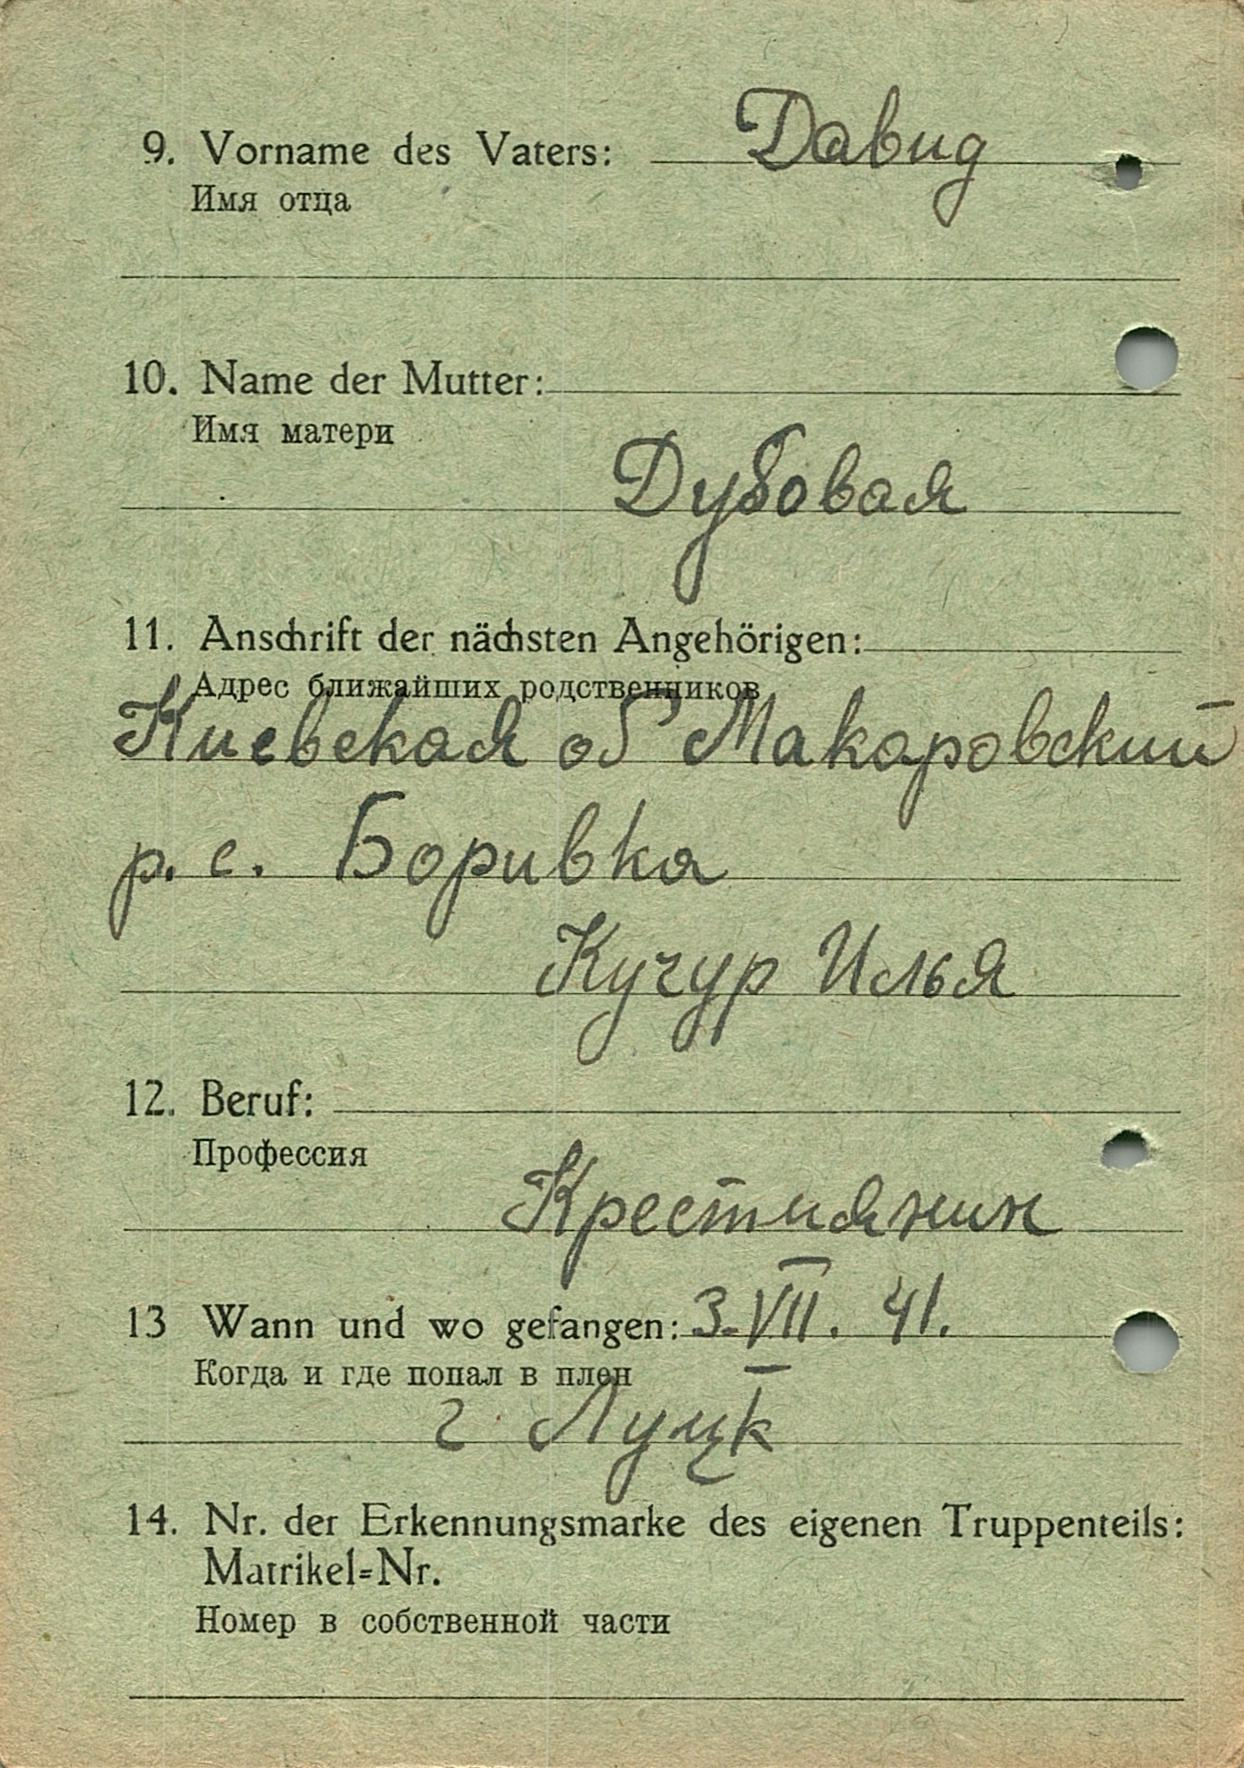 9. Vorname des Vaters: Давид
Имя отца
10. Name der Mutter:
Имя матери
Дубовая
11. Anschrift der nächsten Angehörigen:
Адрес ближайших родственников
Киевская об Макаровский
р. с. Боривка
Кучур Илья
12. Beruf:
Профессия
Крестиянин
13 Wann und wo gefangen: 3.VII. 41.
Когда и где попал в плен
г Луцк
14. Nr. der Erkennungsmarke des eigenen Truppenteils:
Matrikel=Nr.
Номер в собственной части